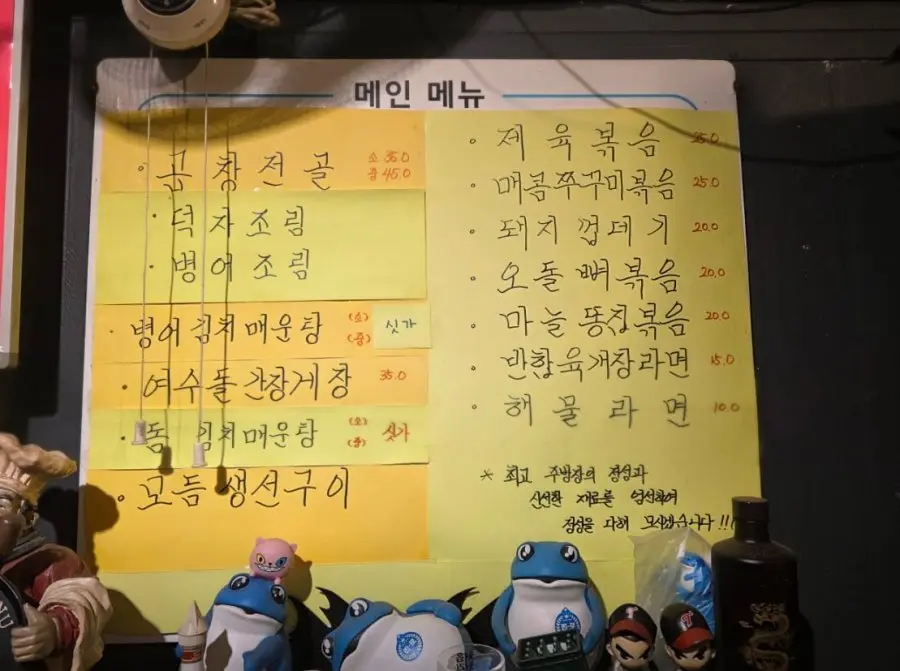 메인 메뉴
곱창전골 소 35.0
중 45.0
덕자조림
병어조림
병어김치매운탕 (소) (중) 싯가
여수돌간장게장 35.0
돔 김치매운탕 (소) (중) 싯가
모듬생선구이
제육볶음
매콤쭈꾸미볶음 25.0
돼지껍데기 20.0
오돌뼈볶음 20.0
마늘똥집볶음 20.0
반합육개장라면 15.0
해물라면 10.0
* 최고 주방장의 정성과
신선한 재료를 엄선하여
정성을 다해 모시겠습니다!!!
NU